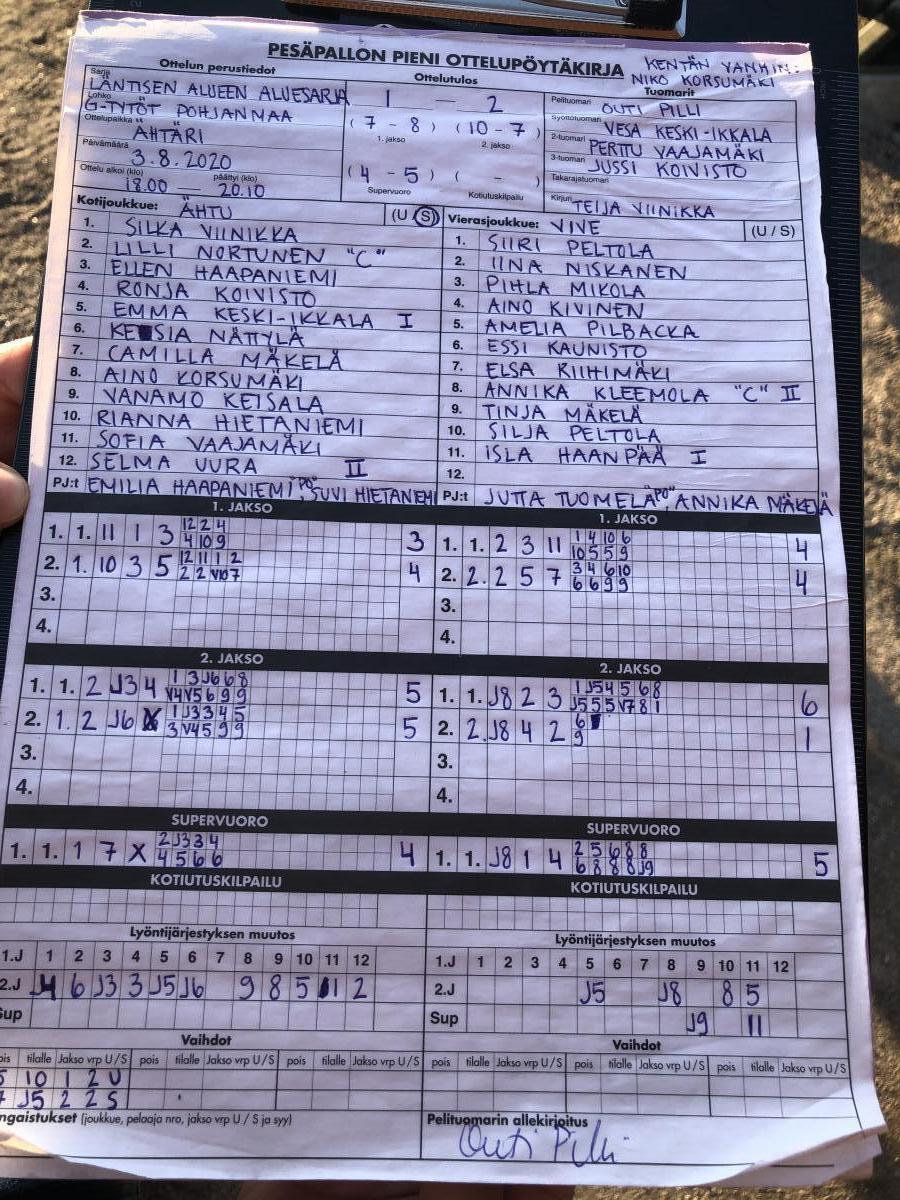 PESÄPALLON PIENI OTTELUPÖYTÄKIRJA
KENTÄN VANHIN:
NIKO KORSUMÄKI
Ottelun perustiedot
Ottelutulos
Tuomarit
Sarja
LÄNTISEN ALUEEN ALUESARJA
Lohko
G-TYTÖT POHJANMAA
Ottelupaikka
ÄHTÄRI
Päivämäärä
3.8.2020
Ottelu alkoi (klo) päättyi (klo)
18.00 — 20.10
1 — 2
(7 - 8) (10 - 7)
1. jakso 2. jakso
(4 - 5) ( - )
Supervuoro Kotiutuskilpailu
Pelituomari OUTI PILLI
Syöttötuomari VESA KESKI-IKKALA
2-tuomari PERTTU VAAJAMÄKI
3-tuomari JUSSI KOIVISTO
Takarajatuomari
Kirjuri TEIJA VIINIKKA
Kotijoukkue: ÄHTU (U S)
1. SILKA VIINIKKA
2. LILLI NORTUNEN "C"
3. ELLEN HAAPANIEMI
4. RONJA KOIVISTO
5. EMMA KESKI-IKKALA I
6. KESIA NÄTTYLÄ
7. CAMILLA MÄKELÄ
8. AINO KORSUMÄKI
9. VANAMO KEISALA
10. RIANNA HIETANIEMI
11. SOFIA VAAJAMÄKI
12. SELMA UURA II
PJ:t EMILIA HAAPANIEMI "PO", SUVI HIETANIEMI
Vierasjoukkue: VIVE (U / S)
1. SIIRI PELTOLA
2. IINA NISKANEN
3. PIHLA MIKOLA
4. AINO KIVINEN
5. AMELIA PILBACKA
6. ESSI KAUNISTO
7. ELSA RIIHIMÄKI
8. ANNIKA KLEEMOLA "C" II
9. TINJA MÄKELÄ
10. SILJA PELTOLA
11. ISLA HAANPÄÄ I
12.
PJ:t JUTTA TUOMELA "PO", ANNIKA MÄKELÄ
1. JAKSO
1. 1. 11 1 3 12 2 4 3
4 10 9
2. 1. 10 3 5 12 11 1 2 4
2 2 V10 7
3.
4.
1. JAKSO
1. 1. 2 3 11 1 4 10 6 4
10 5 5 9
2. 2. 2 5 7 3 4 6 10 4
6 6 9 9
3.
4.
2. JAKSO
1. 1. 2 J3 4 1 3 J6 6 8 5
V4 V5 6 9 9
2. 1. 2 J6 X 1 J3 3 4 5 5
3 V4 5 9 9
3.
4.
2. JAKSO
1. 1. J8 2 3 1 J5 4 5 6 8 6
J5 5 5 V7 8 1
2. 2. J8 4 2 6 1
9
3.
4.
SUPERVUORO
1. 1. 1 7 X 2 J3 3 4 4
4 5 6 6
SUPERVUORO
1. 1. J8 1 4 2 5 6 8 8 5
6 8 8 8 J9
KOTIUTUSKILPAILU
KOTIUTUSKILPAILU
Lyöntijärjestyksen muutos
1.J 1 2 3 4 5 6 7 8 9 10 11 12
2.J J4 6 J3 3 J5 J6 9 8 5 11 2
Sup
Lyöntijärjestyksen muutos
1.J 1 2 3 4 5 6 7 8 9 10 11 12
2.J J5 J8 8 5
Sup J9 11
Vaihdot
pois tilalle Jakso vrp U / S pois tilalle Jakso vrp U / S pois tilalle Jakso vrp U / S
5 10 1 2 U
7 J5 2 2 S
Vaihdot
pois tilalle Jakso vrp U / S pois tilalle Jakso vrp U / S pois tilalle Jakso vrp U / S
ngaistukset (joukkue, pelaaja nro, jakso vrp U / S ja syy)
Pelituomarin allekirjoitus
Outi Pilli